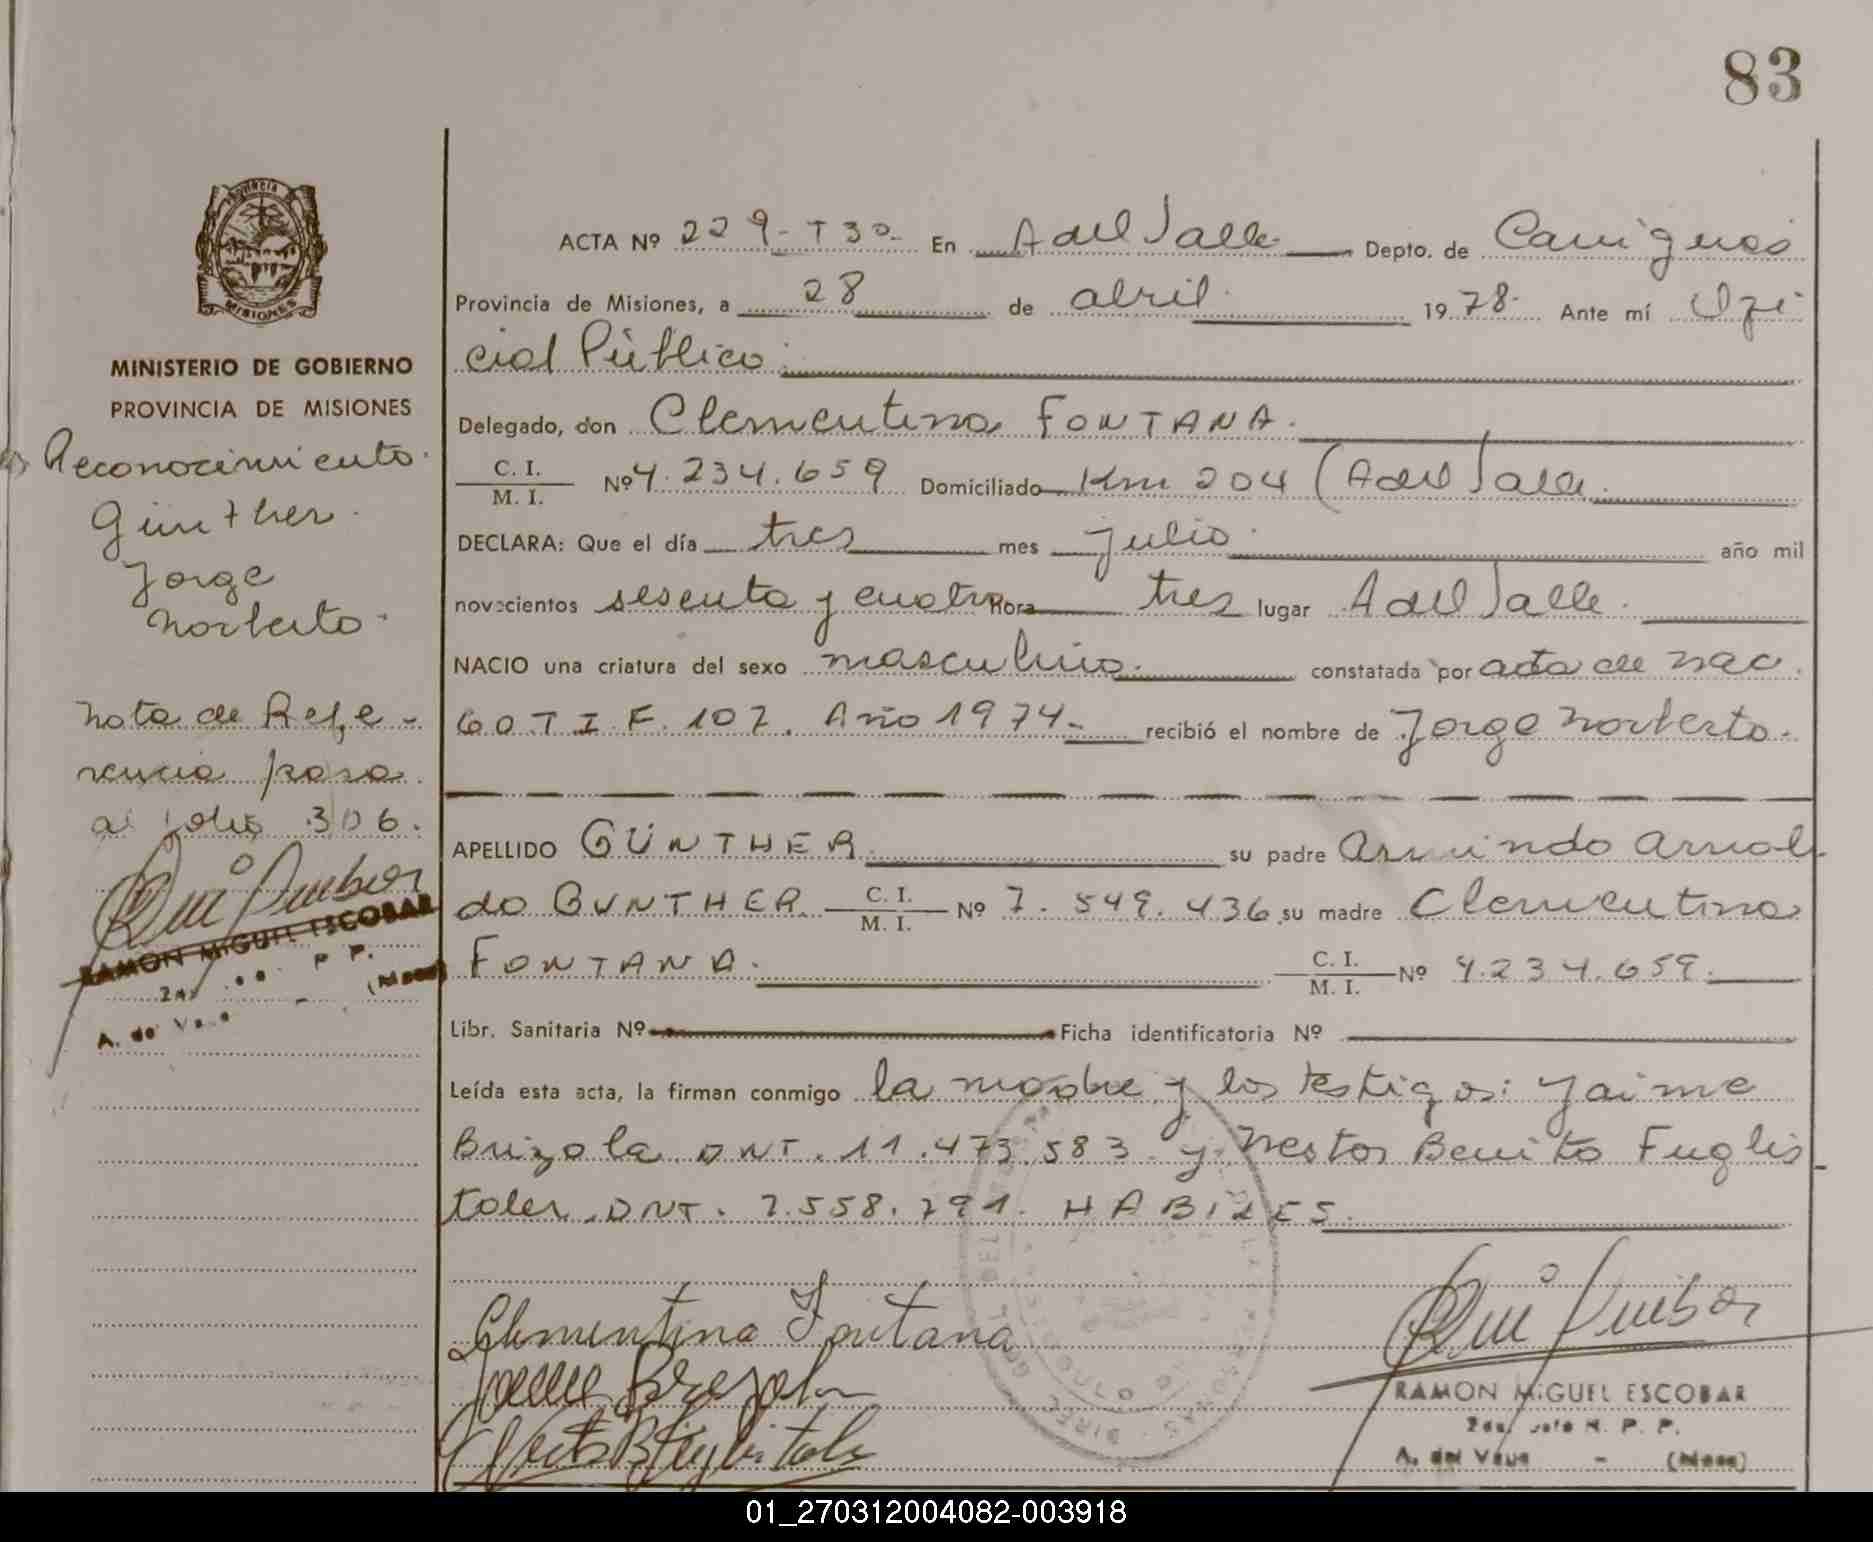 83
PROVINCIA
MISIONES
MINISTERIO DE GOBIERNO
PROVINCIA DE MISIONES
Reconocimiento.
Günther
Jorge
Norberto.
Nota de Refe-
rencia pasa
al folio 306.
RAMON MIGUEL ESCOBAR
P. P.
A. del
ACTA Nº 229- T 3º- En A del Valle Depto. de Cainguas
Provincia de Misiones, a 28 de abril. 1978. Ante mí Ofi
cial Público.
Delegado, don Clementina FONTANA.
C. I. / M. I. Nº 4.234.659 Domiciliado Km 204 (A del Valle.
DECLARA: Que el día tres mes julio. año mil
novecientos sesenta y cuatro Hora tres lugar A del Valle.
NACIO una criatura del sexo masculino. constatada por acta de nac.
60 T I F. 107. Año 1974- recibió el nombre de Jorge Norberto.
APELLIDO GÜNTHER su padre Armindo Arnol
do GUNTHER C. I. / M. I. Nº 7. 549. 436 su madre Clementina
FONTANA. C. I. / M. I. Nº 4.234.659.
Libr. Sanitaria Nº Ficha identificatoria Nº
Leída esta acta, la firman conmigo la madre y los testigos: Jaime
Brizola DNT. 11.473.583. y Nestor Benito Fuglis
taler DNT. 7.558.791. HABILES.
Clementina Fontana
RAMON MIGUEL ESCOBAR
R. P. P.
A. del Valle - (Mnes)
01_270312004082-003918